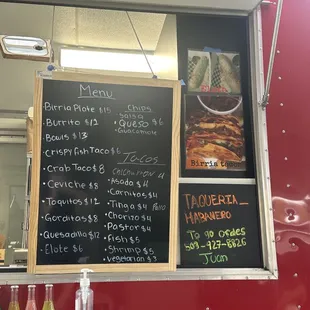 Menu
Birria Plate $15
Burrito $12
Bowls $13
Crispy Fish Taco $6
Crab Taco $8
Ceviche $8
Taquitos $12
Gorditas $8
Quesadilla $12
Elote $6
Chips
Salsa
Queso $6
Guacamole
Tacos
Asada $4
Carnitas $4
Tinga $4
Chorizo $4
Pastor $4
Fish $5
Shrimp $5
Vegetarian $3
Birria tacos
TAQUERIA
HABANERO
To go orders
509-927-8826
Juan